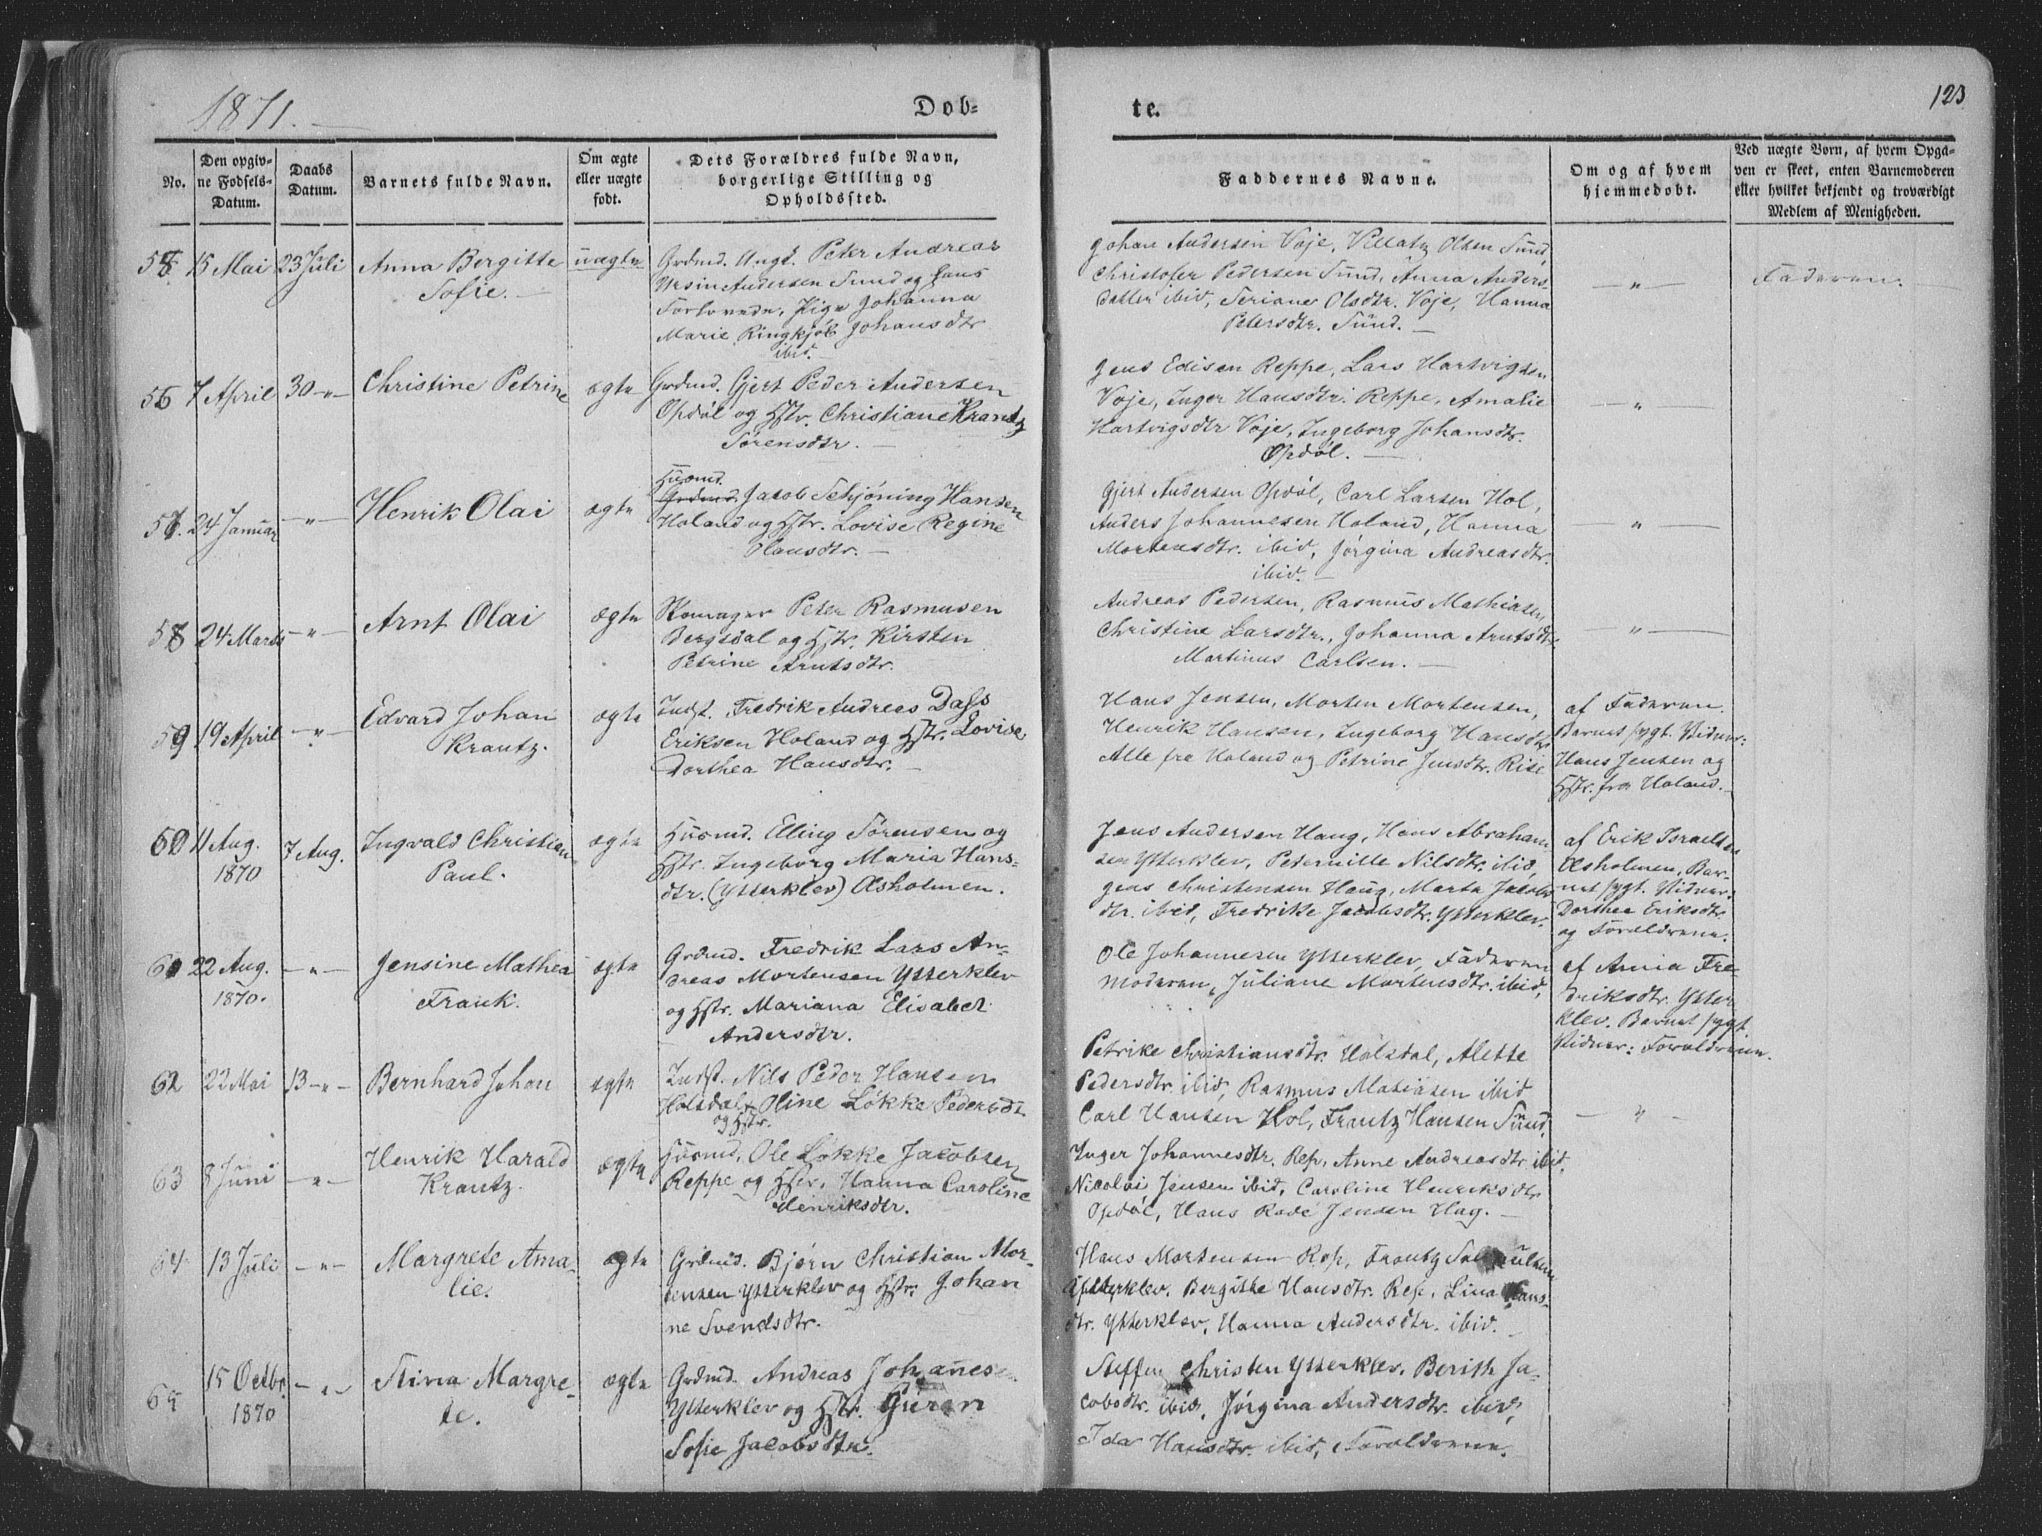 1871.
Døb-
te.
123
No.
Den opgiv-
ne Fødsels-
Datum.
Daabs
Datum.
Barnets fulde Navn.
Om ægte
eller uægte
født.
Dets Forældres fulde Navn,
borgerlige Stilling og
Opholdssted.
Faddernes Navne.
Om og af hvem
hjemmedøbt.
Ved uægte Børn, af hvem Opga-
ven er skeet, enten Barnemoderen
eller hvilket bekjendt og troværdigt
Medlem af Menigheden.
15 Mai 23 Juli
Anna Bergitte
Sofie.
uægte
Grdmd. Ungk. Peter Andreas
Andersen Sund og hans
Forlovede, Pige Johanna
Marie Ringkjøb Johansdtr
ibid.
Johan Andersen Voje, Olsen Sund,
Christofer Pedersen Sund, Anna Anders-
datter ibid, Seriane Olsdtr. Voje, Hanna
Petersdtr. Sund.
— " —
Faderen.
56 7 April 30 - " -
Christine Petrine
ægte
Grdmd. Gjert Peder Andersen
Opdøl og Hstr. Christiane Krantz
Sørensdtr.
Jens Edisen Reppe, Lars Hartvigsen
Voje, Inger Hansdtr. Reppe, Amalie
Hartvigsdtr Voje, Ingeborg Johansdtr.
Opdøl.
"
57. 24 Januar - " -
Henrik Olai
ægte
Husmd.
Grdmd. Jacob Schjøning Hansen
Holand og Hstr. Lovise Regine
Olausdtr.
Gjert Andersen Opdøl, Carl Larsen Hol,
Anders Johannesen Holand, Hanna
Mortensdtr. ibid, Jørgina Andreasdtr.
ibid.
"
58 24 Marts - " -
Arnt Olai
ægte
Skomager Peter Rasmusen
Bergsdal og Hstr. Kirsten
Petrine Arntsdtr.
Andreas Pedersen, Rasmus Mathiasen,
Christine Larsdtr., Johanna Arntsdtr
Martinus Carlsen.
— " —
59 19 April - " -
Edvard Johan
Krantz.
ægte
Indst. Fredrik Andreas Dass
Eriksen Holand og Hstr. Lovise
Dorthea Hansdtr.
Hans Jensen, Morten Mortensen,
Henrik Hansen, Ingeborg Hansdtr
Alle fra Holand og Petrine Jensdtr. Rise
af Faderen.
Barnet sygt. Vidner:
Hans Jensen og
Hstr. fra Holand.
60 11 Aug.
1870
7 Aug.
Ingvald Christian
Paul.
ægte
Husmd. Elling Sørensen og
Hstr. Ingeborg Maria Hans-
dtr. (Ytterklev) Æsholmen.
Jens Andersen Haug, Hans Abraham
sen Ytterklev, Pedernille Nilsdtr. ibid,
Jens Christensen Haug, Marta Jacobs
dtr. ibid, Fredrikke Jacobsdtr. Ytterklev.
af Erik Israelsen
Æsholmen, Bar-
net sygt. Vidner:
Dorthea Eriksdtr
og Forældrene.
61 22 Aug.
1870.
- " -
Jensine Mathea
Frank.
ægte
Grdmd. Fredrik Lars An-
dreas Mortensen Ytterklev
og Hstr. Mariana Elisabet
Andersdtr.
Ole Johannesen Ytterklev, Faderen
Moderen, Juliane Mortensdtr. ibid,
af Anna Fre-
driksdtr. Ytter
klev. Barnet sygt
Vidner: Forældrene.
62 22 Mai 13 - " -
Bernhard Johan
ægte
Indst. Nils Peder Hansen
Holsdal Oline Løkke Pedersdtr
og Hstr.
Petrike Christiansdtr. Holsdal, Alette
Pedersdtr. ibid, Rasmus Matiasen ibid
Carl Hansen Hol, Frantz Hansen Sund,
— " —
63 8 Juni - " -
Henrik Harald
Krantz.
ægte
Husmd. Ole Løkke Jacobsen
Reppe og Hstr. Hanna Caroline
Henriksdtr.
Inger Johannesdtr. Rep. Anne Andreasdtr. ibid.
Nicolai Jensen ibid, Caroline Henriksdtr
Opdøl, Hans Rode Jensen Hag.
64 13 Juli - " -
Margrete Ama-
lie.
ægte
Grdmd. Bjørn Christian Mor-
tensen Ytterklev og Hstr. Johan
ne Svendsdtr.
Hans Mortensen Rep, Frantz
Ytterklev. Bergitte Hansdtr. Rep, Lina Hans-
dtr. Ytterklev, Hanna Andersdtr. ibid.
65 15 Octbr.
1870
- " -
Stina Margre-
te.
ægte
Grdmd. Andreas Johanes
Ytterklev og Hstr. Guren
Sofie Jacobsdtr.
Steffen Christen Ytterklev. Berith Ja-
cobsdtr. ibid, Jørgina Andersdtr. ibid,
Ida Hansdtr. ibid, Forældrene.